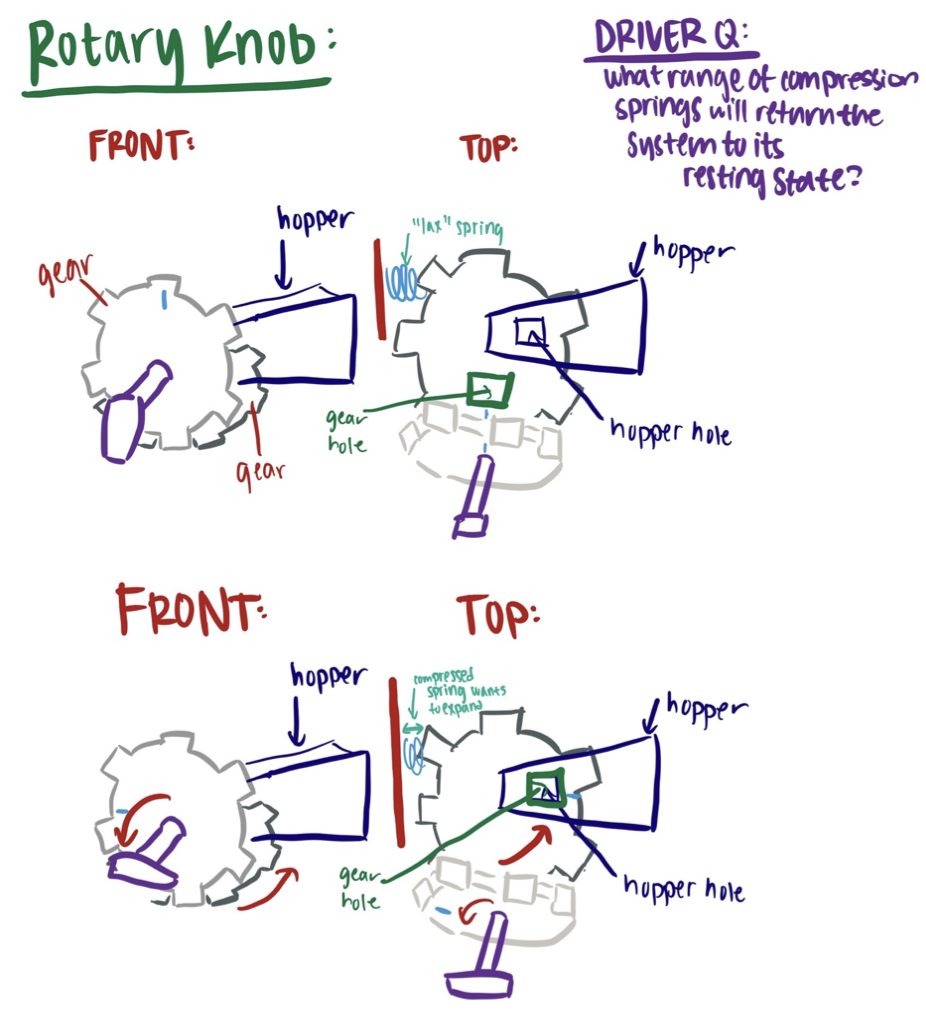 Rotary Knob:
DRIVER Q:
what range of compression
springs will return the
system to its
resting state?
FRONT:
TOP:
hopper
"lax" spring
hopper
gear
gear
hole
hopper hole
gear
FRONT:
TOP:
hopper
compressed
spring wants
to expand
hopper
gear
hole
hopper hole